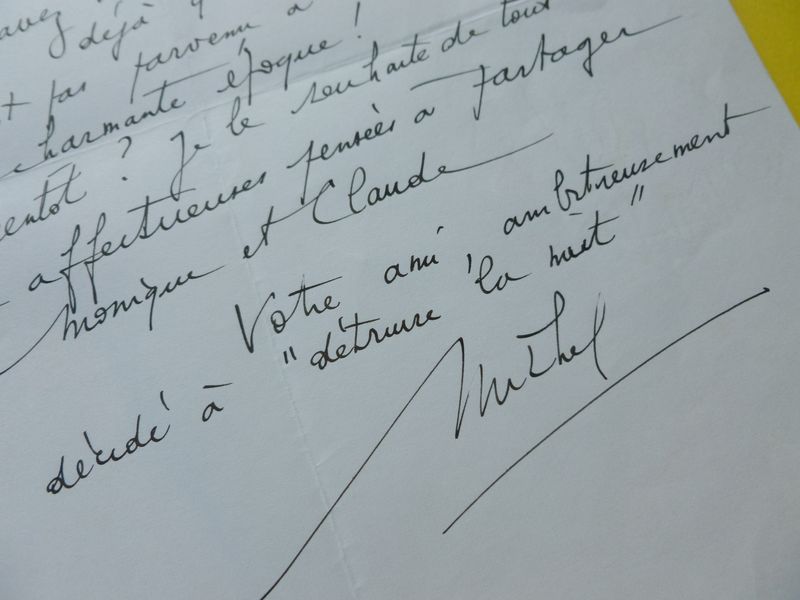 avez
déjà y
t pas parvenu à
charmante époque !
ientôt ? Je le souhaite de tout
affectueuses pensées à partager
Monique et Claude
Votre ami, ambitieusement
décidé à "détruire la nuit"
Michel